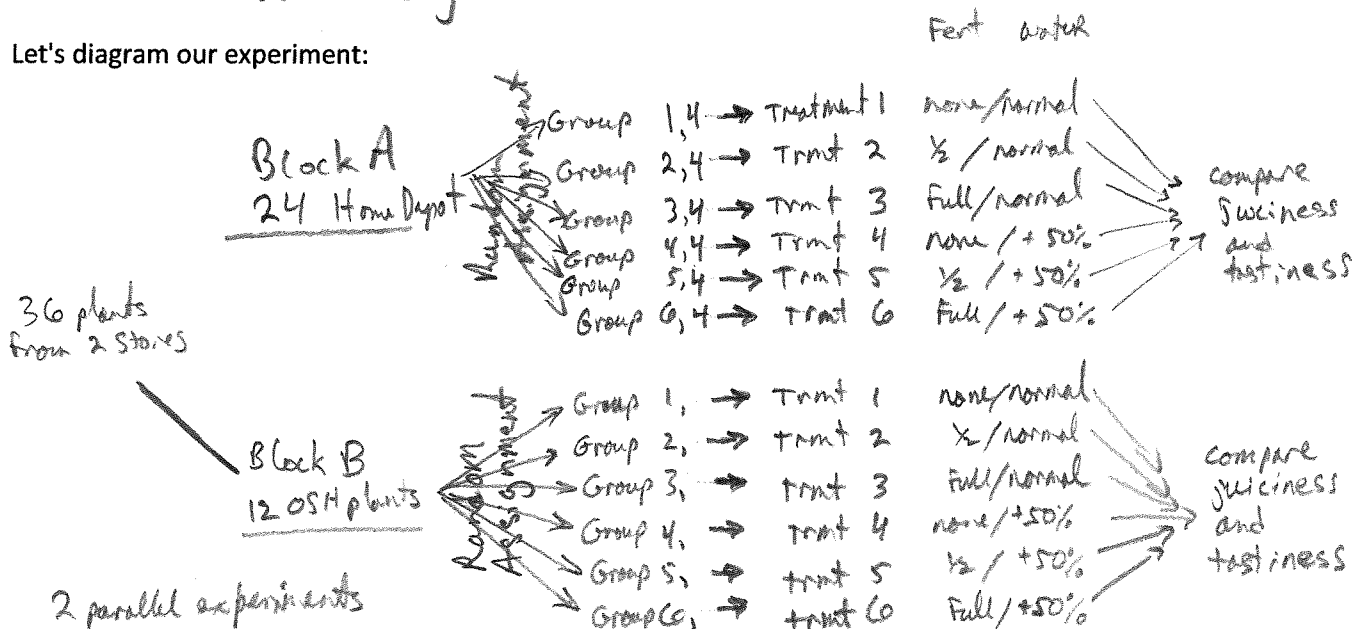 Fert water
Let's diagram our experiment:
Block A
24 Home Depot
Random Assignment
Group 1,4 → Treatment 1 none/normal
Group 2,4 → Trmt 2 ½ / normal
Group 3,4 → Trmt 3 Full/normal
Group 4,4 → Trmt 4 none / +50%
Group 5,4 → Trmt 5 ½ / +50%
Group 6,4 → Trmt 6 Full / +50%
compare
juiciness
and
tastiness
36 plants
from 2 stores
Block B
12 OSH plants
Random Assignment
Group 1, → Trmt 1 none/normal
Group 2, → Trmt 2 ½/normal
Group 3, → Trmt 3 Full/normal
Group 4, → Trmt 4 none/+50%
Group 5, → trmt 5 ½ / +50%
Group 6, → trmt 6 Full/+50%
compare
juiciness
and
tastiness
2 parallel experiments